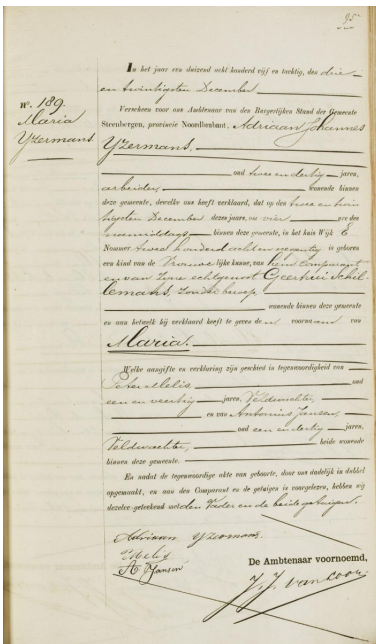 95
N°. 189.
Maria
Yzermans
In het jaar een duizend acht honderd vijf en tachtig, den drie
en twintigsten December
Verscheen voor ons Ambtenaar van den Burgerlijken Stand der Gemeente
Steenbergen, provincie Noordbrabant, Adriaan Johannes
Yzermans.
oud twee en dertig jaren,
arbeider, wonende binnen
deze gemeente, dewelke ons heeft verklaard, dat op den twee en twin
tigsten December dezes jaars, om vier ure des
namiddags binnen deze gemeente, in het huis Wijk E
Nommer twee honderd acht en negentig is geboren
een kind van de Vrouwelijke kunne, van hem comparant
en van zijne echtgenoot Geertrui Schil
lemans, zonder beroep,
wonende binnen deze gemeente
en aan hetwelk hij verklaard heeft te geven den voornaam van
Maria.
Welke aangifte en verklaring zijn geschied in tegenwoordigheid van
Peter Melis oud
een en veertig jaren, Veldwachter,
en van Antonius Jansen,
oud een en dertig jaren,
Veldwachter, beide wonende
binnen deze gemeente.
En nadat de tegenwoordige akte van geboorte, door ons dadelijk in dubbel
opgemaakt, en aan den Comparant en de getuigen is voorgelezen, hebben wij
dezelve geteekend met den Vader en de beide getuigen.
Adriaan Yzermans
Melis
A Jansen
De Ambtenaar voornoemd,
J. J. van Loon